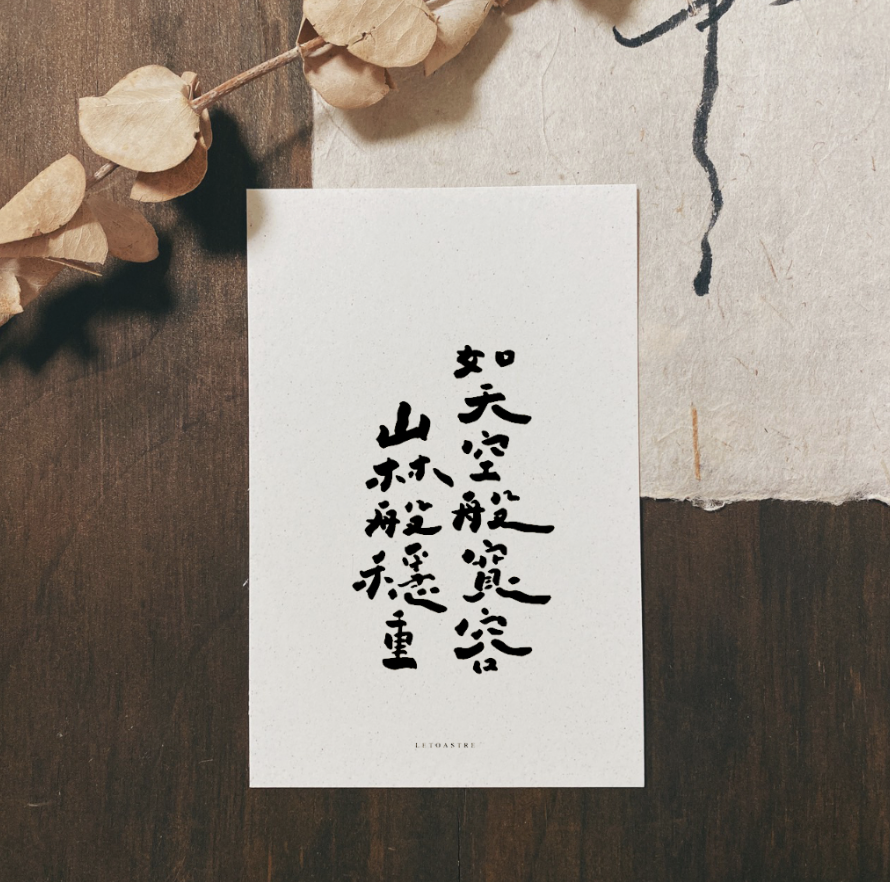 如天空般寬容
山林般穩重
LETOASTRE